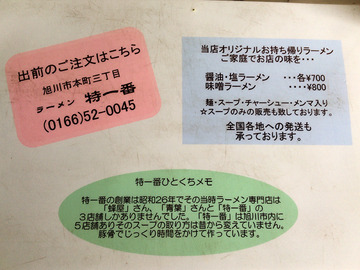 出前のご注文はこちら
旭川市本町三丁目
ラーメン 特一番
(0166)52-0045
当店オリジナルお持ち帰りラーメン
ご家庭でお店の味を・・・
醤油・塩ラーメン ・・・各¥700
味噌ラーメン ・・・・¥800
麺・スープ・チャーシュー・メンマ入り
☆スープのみの販売も致しております。
全国各地への発送も
承っております。
特一番ひとくちメモ
特一番の創業は昭和26年でその当時ラーメン専門店は
「蜂屋」さん、「青葉」さんと「特一番」の
3店舗しかありませんでした。「特一番」は旭川市内に
5店舗ありそのスープの取り方は昔から変えていません。
豚骨でじっくり時間をかけて作っています。